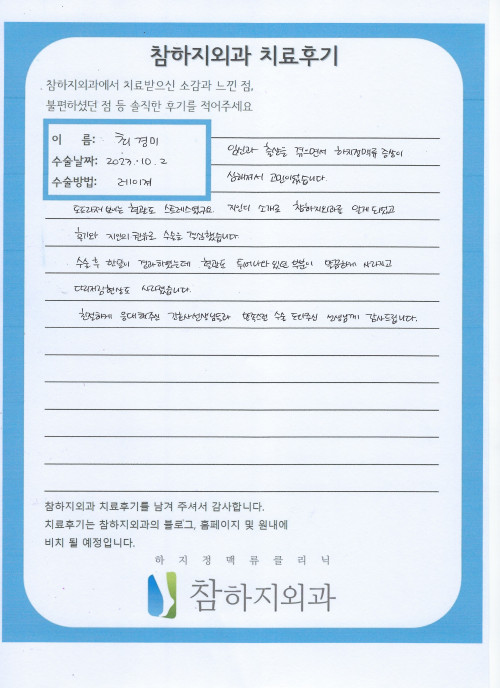 참하지외과 치료후기
참하지외과에서 치료받으신 소감과 느낀 점,
불편하셨던 점 등 솔직한 후기를 적어주세요
이 름: 최경미
수술날짜: 2023.10.2
수술방법: 레이저
임신과 출산을 겪으면서 하지정맥류 증상이
심해져서 고민이었습니다.
도드라져 보이는 혈관도 스트레스였구요. 지인의 소개로 참하지외과를 알게 되었고
후기와 지인의 권유로 수술을 결심했습니다.
수술 후 한달이 경과하였는데 혈관도 튀어나와 있던 부분이 말끔하게 사라지고
다리저림현상도 사라졌습니다.
친절하게 응대해주신 간호사선생님들과 만족스런 수술 도와주신 선생님께 감사드립니다.
참하지외과 치료후기를 남겨 주셔서 감사합니다.
치료후기는 참하지외과의 블로그, 홈페이지 및 원내에
비치 될 예정입니다.
하지정맥류클리닉
참하지외과